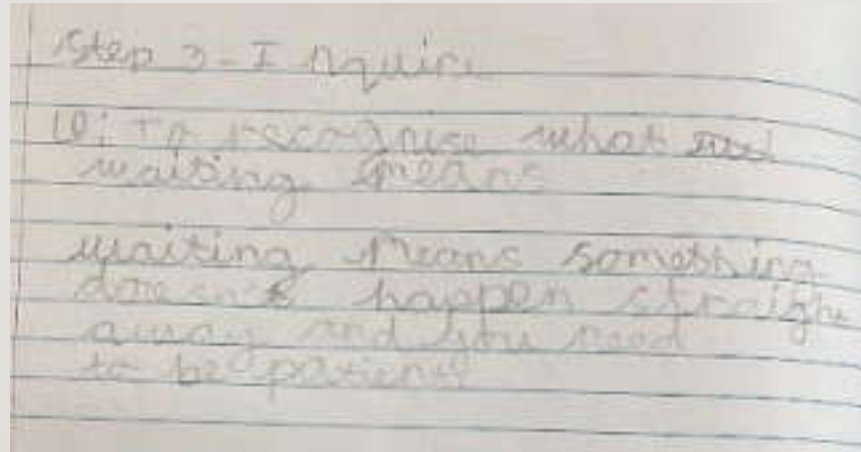 Step 3 - Inquire
LO: To recognise what
waiting means
waiting means something
doesn't happen straight
away and you need
to be patient